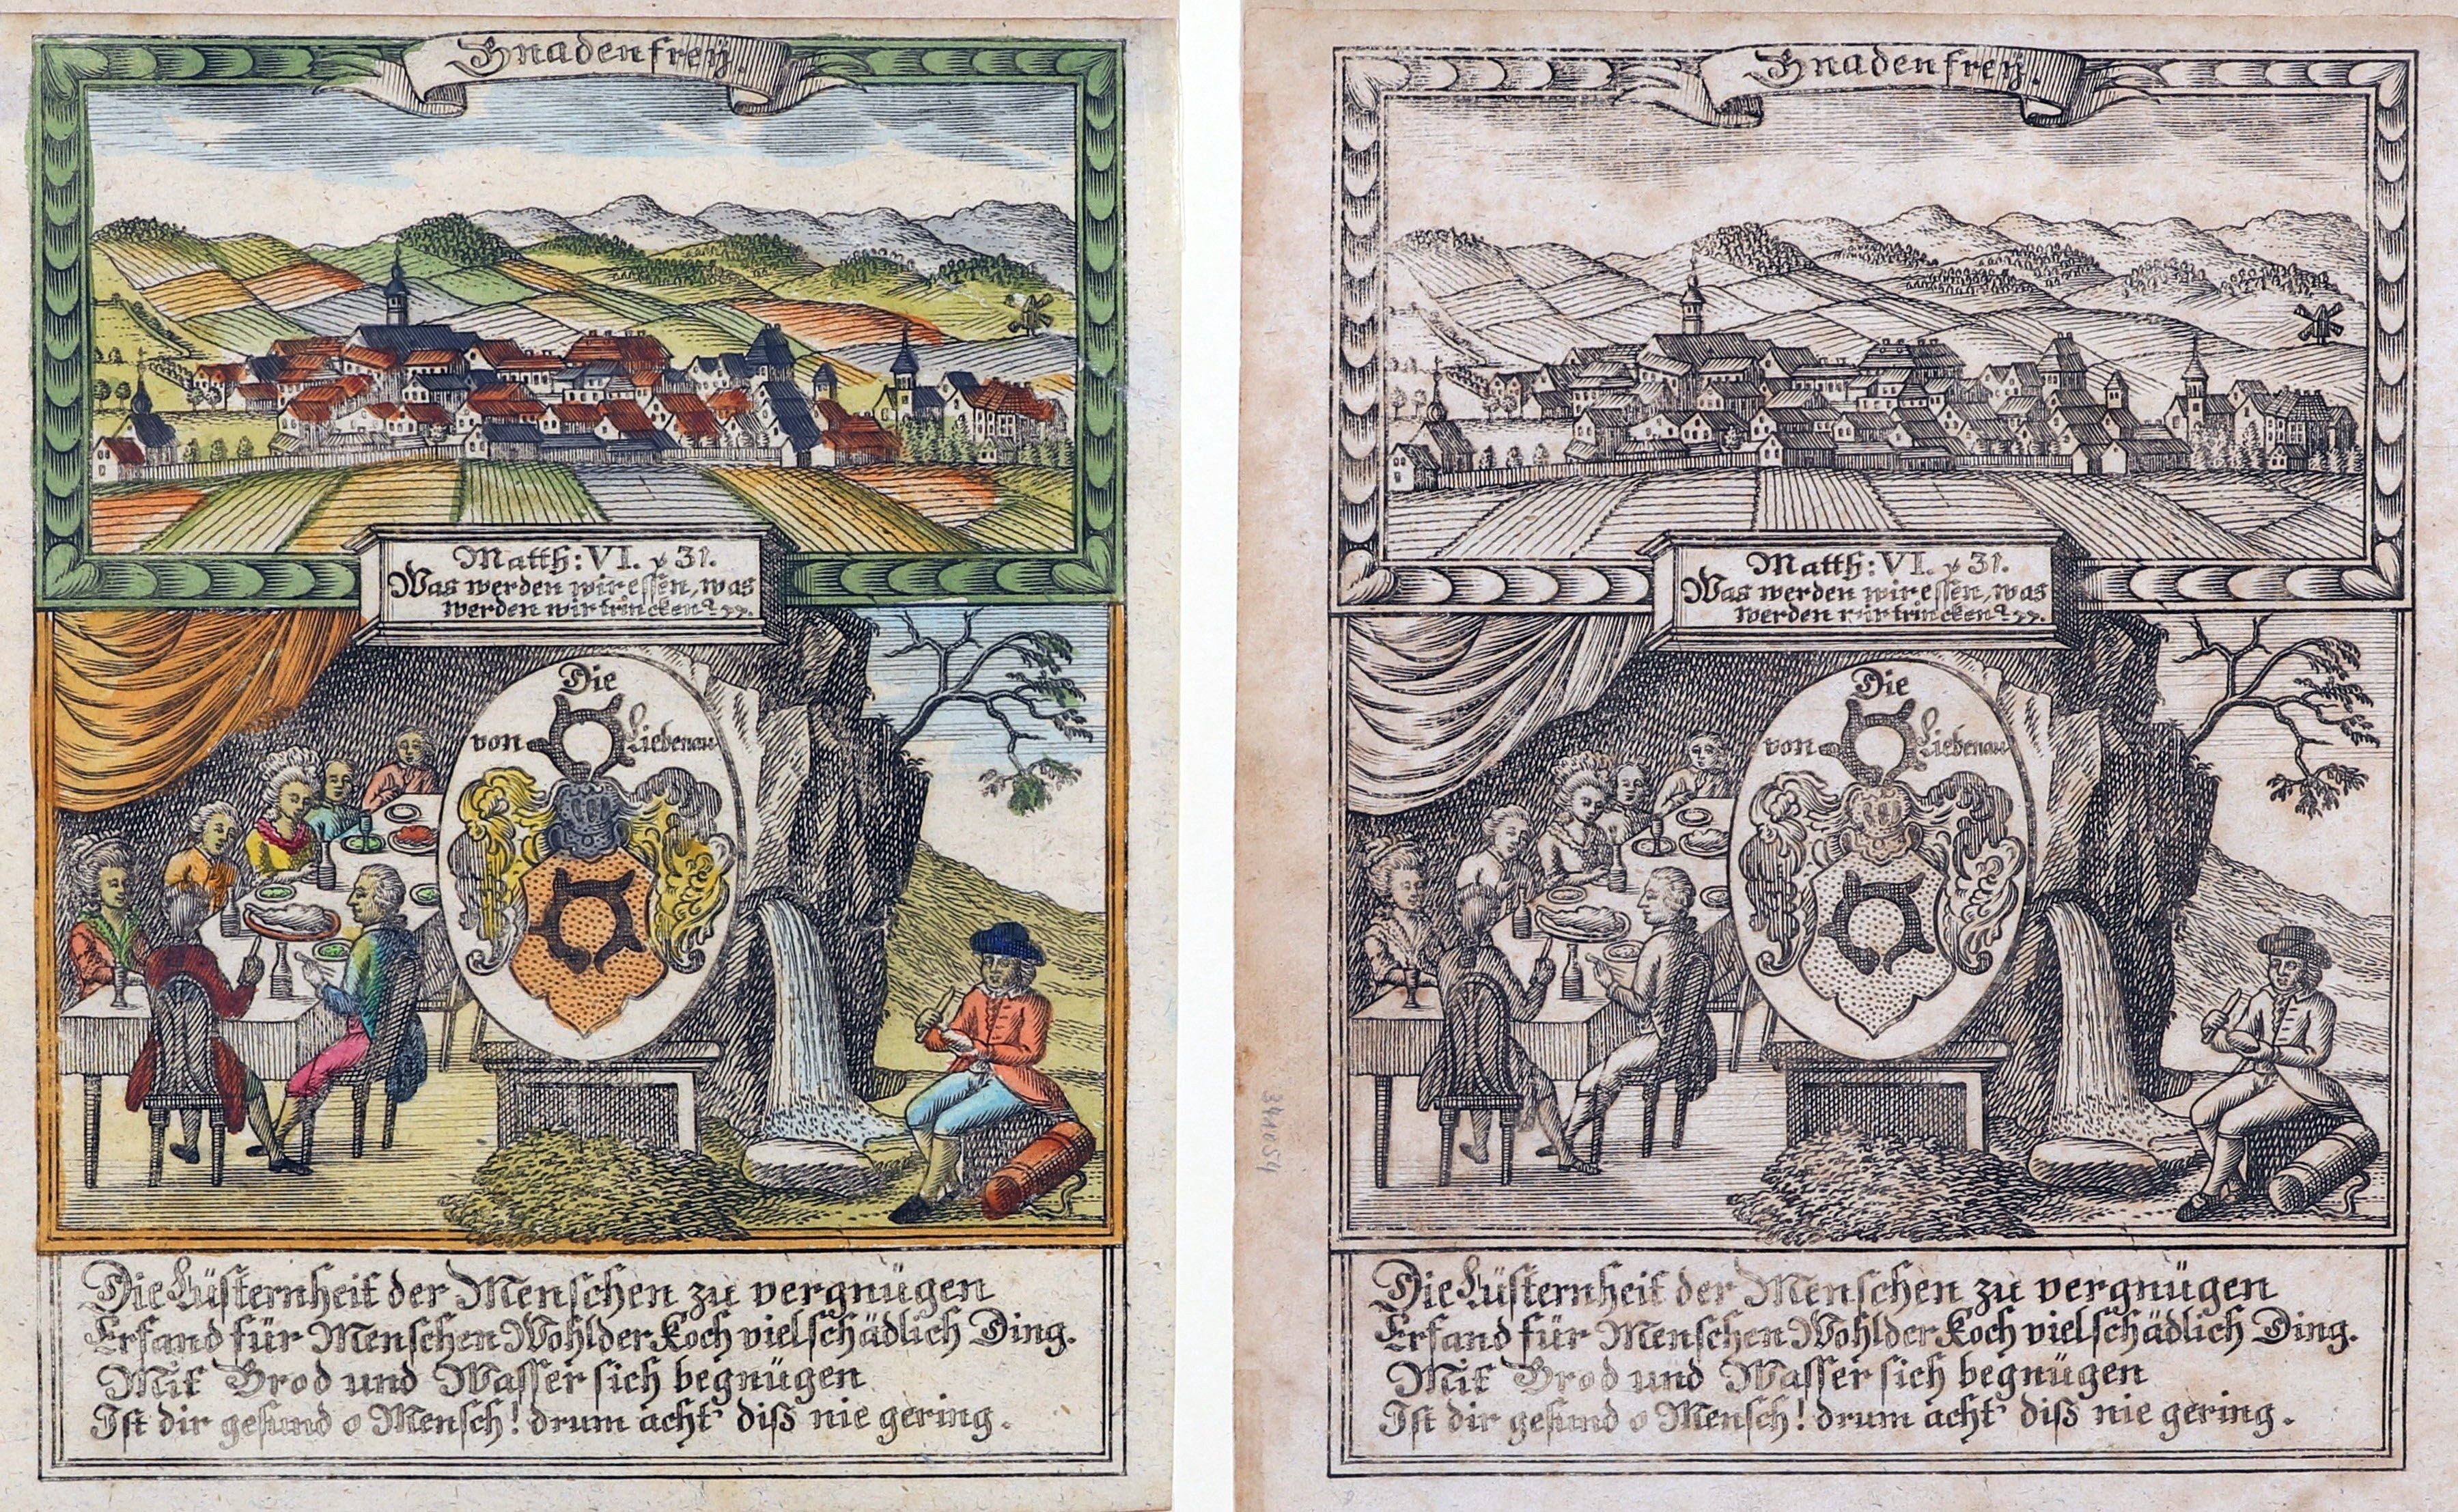 Gnadenfrey.
Matth: VI. ℣ 31.
Was werden wir essen, was
werden wir trincken?
Die
von Liebenau
Die Lüsternheit der Menschen zu vergnügen
Erfand für Menschen Wohl der Koch viel schädlich Ding.
Mit Brod und Wasser sich begnügen
Ist dir gesund o Mensch! drum acht' diß nie gering.
Gnadenfrey.
Matth: VI. ℣ 31.
Was werden wir essen, was
werden wir trincken?
Die
von Liebenau
344054
Die Lüsternheit der Menschen zu vergnügen
Erfand für Menschen Wohl der Koch viel schädlich Ding.
Mit Brod und Wasser sich begnügen
Ist dir gesund o Mensch! drum acht' diß nie gering.